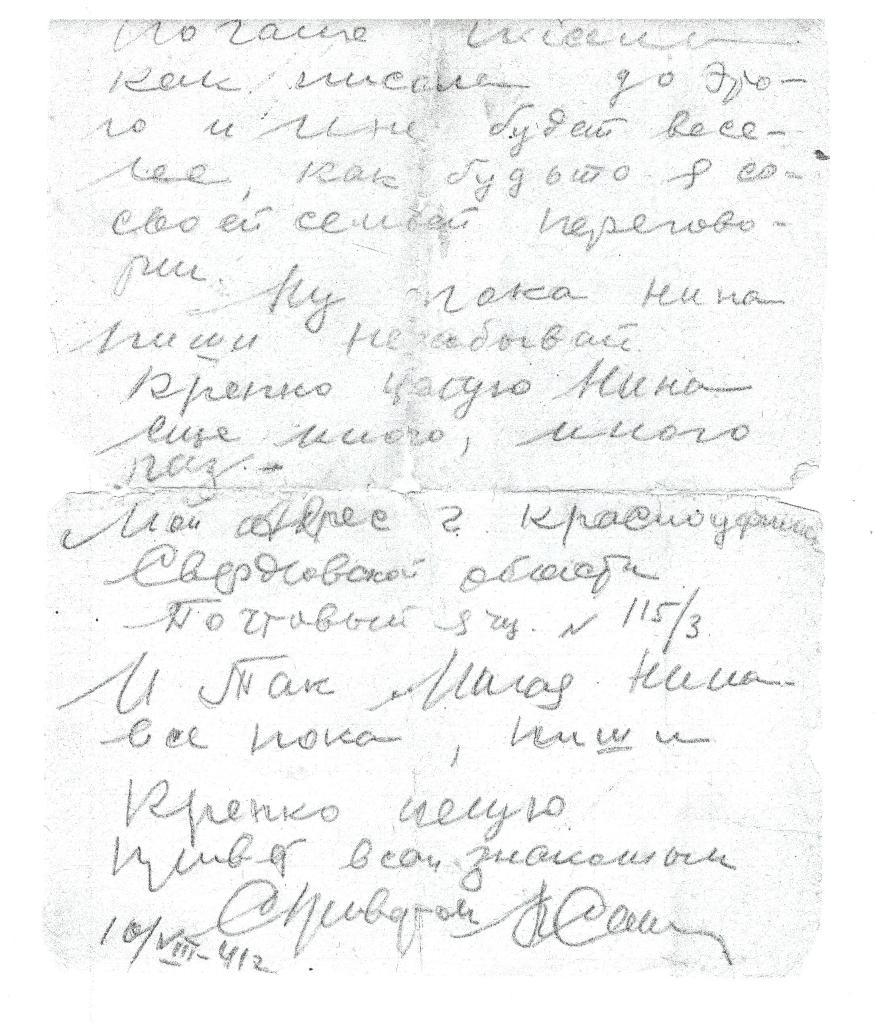 почаще пиши
как писала до это-
го и мне будет весе-
лее, как будьто я со-
своей семьей перегово-
рил.
Ну пока Нина
пиши незабывай
Крепко целую Нина
еще много, много
раз.-
Мой адрес г. Красноуфимск
Свердловской области
Почтовый ящ. № 115/3
И так Милая Нина-
все пока, пиши
Крепко целую
привет всем знакомым
С приветом
10/VIII-41г